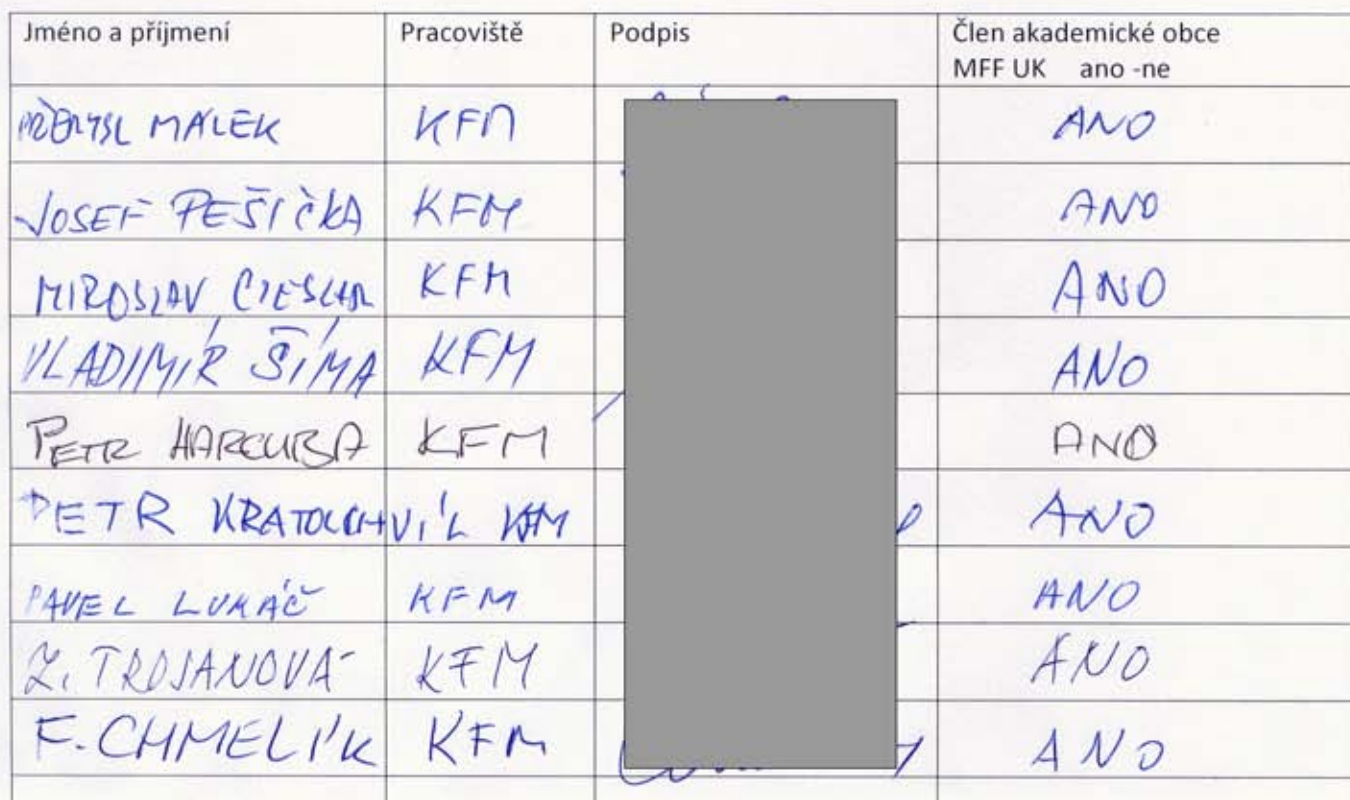 Jméno a příjmení Pracoviště Podpis Člen akademické obce
MFF UK ano -ne
PŘEMYSL MÁLEK KFM ANO
JOSEF PEŠIČKA KFM ANO
MIROSLAV CIESLAR KFM ANO
VLADIMÍR ŠÍMA KFM ANO
PETR HARCUBA KFM ANO
PETR KRATOCHVÍL KFM ANO
PAVEL LUKÁČ KFM ANO
Z. TROJANOVÁ KFM ANO
F. CHMELÍK KFM ANO